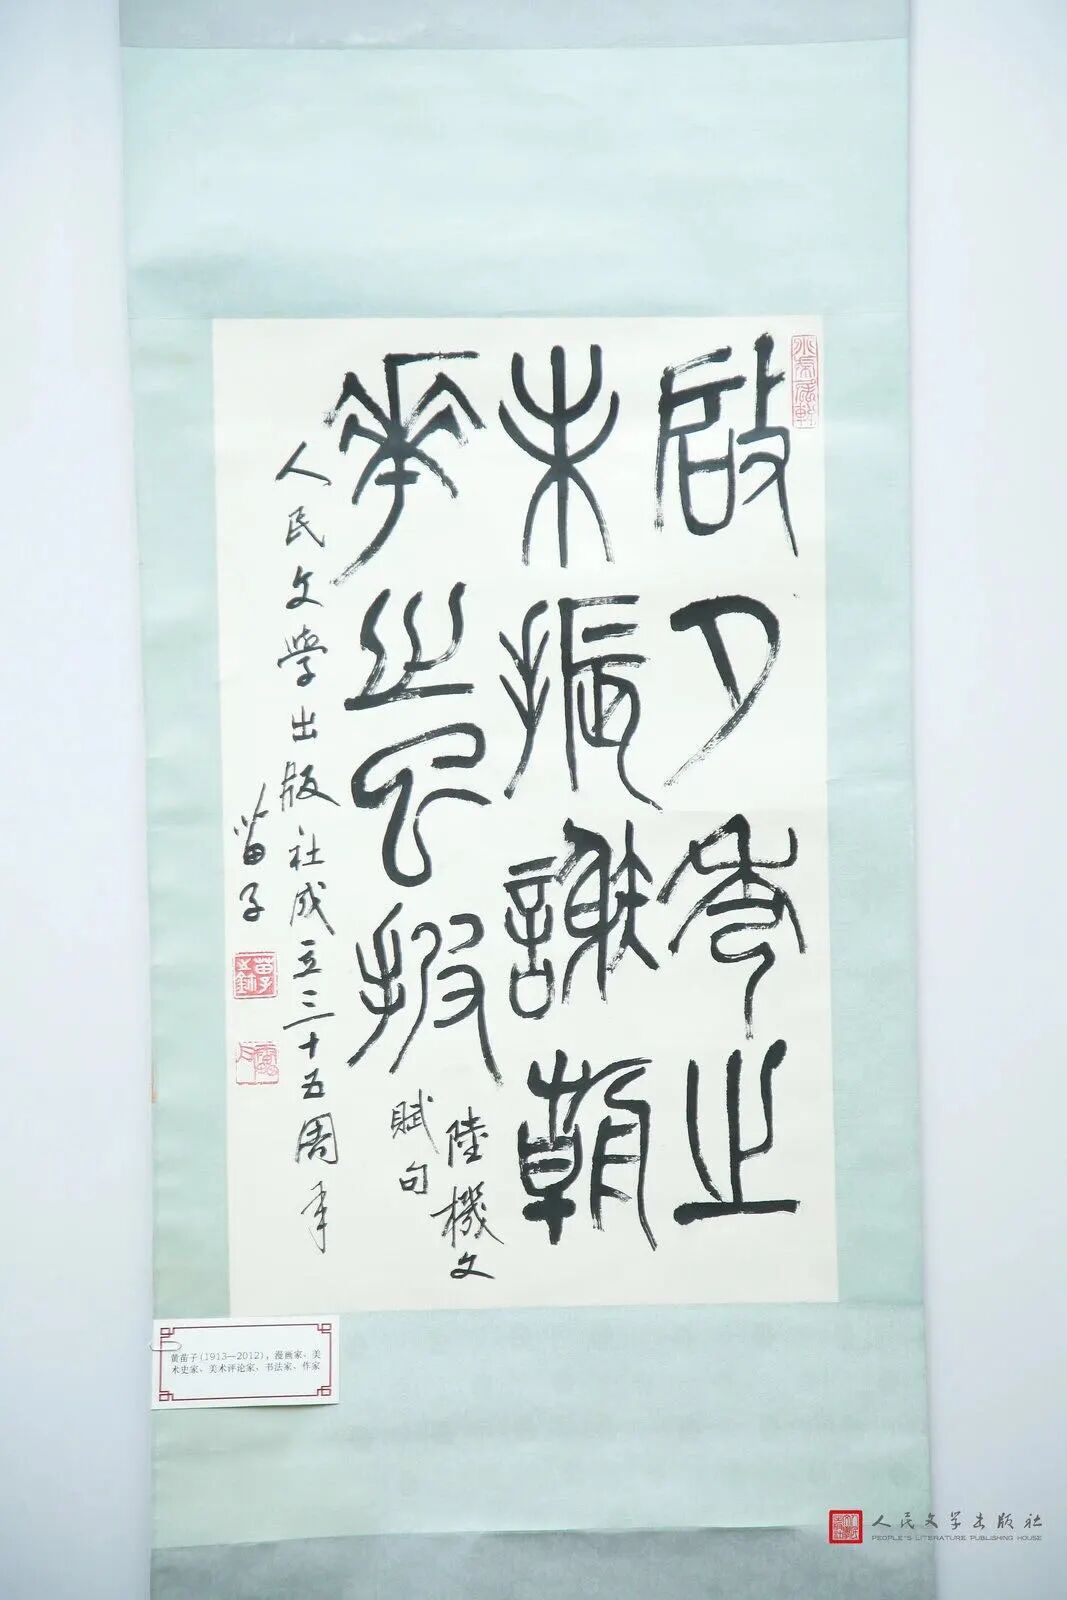 啟夕秀之
未振謝朝
華之已披
陸機文
賦句
人民文學出版社成立三十五周年
苗子
黄苗子(1913—2012)，漫画家、美
术史家、美术评论家、书法家、作家
人民文学出版社
PEOPLE'S LITERATURE PUBLISHING HOUSE